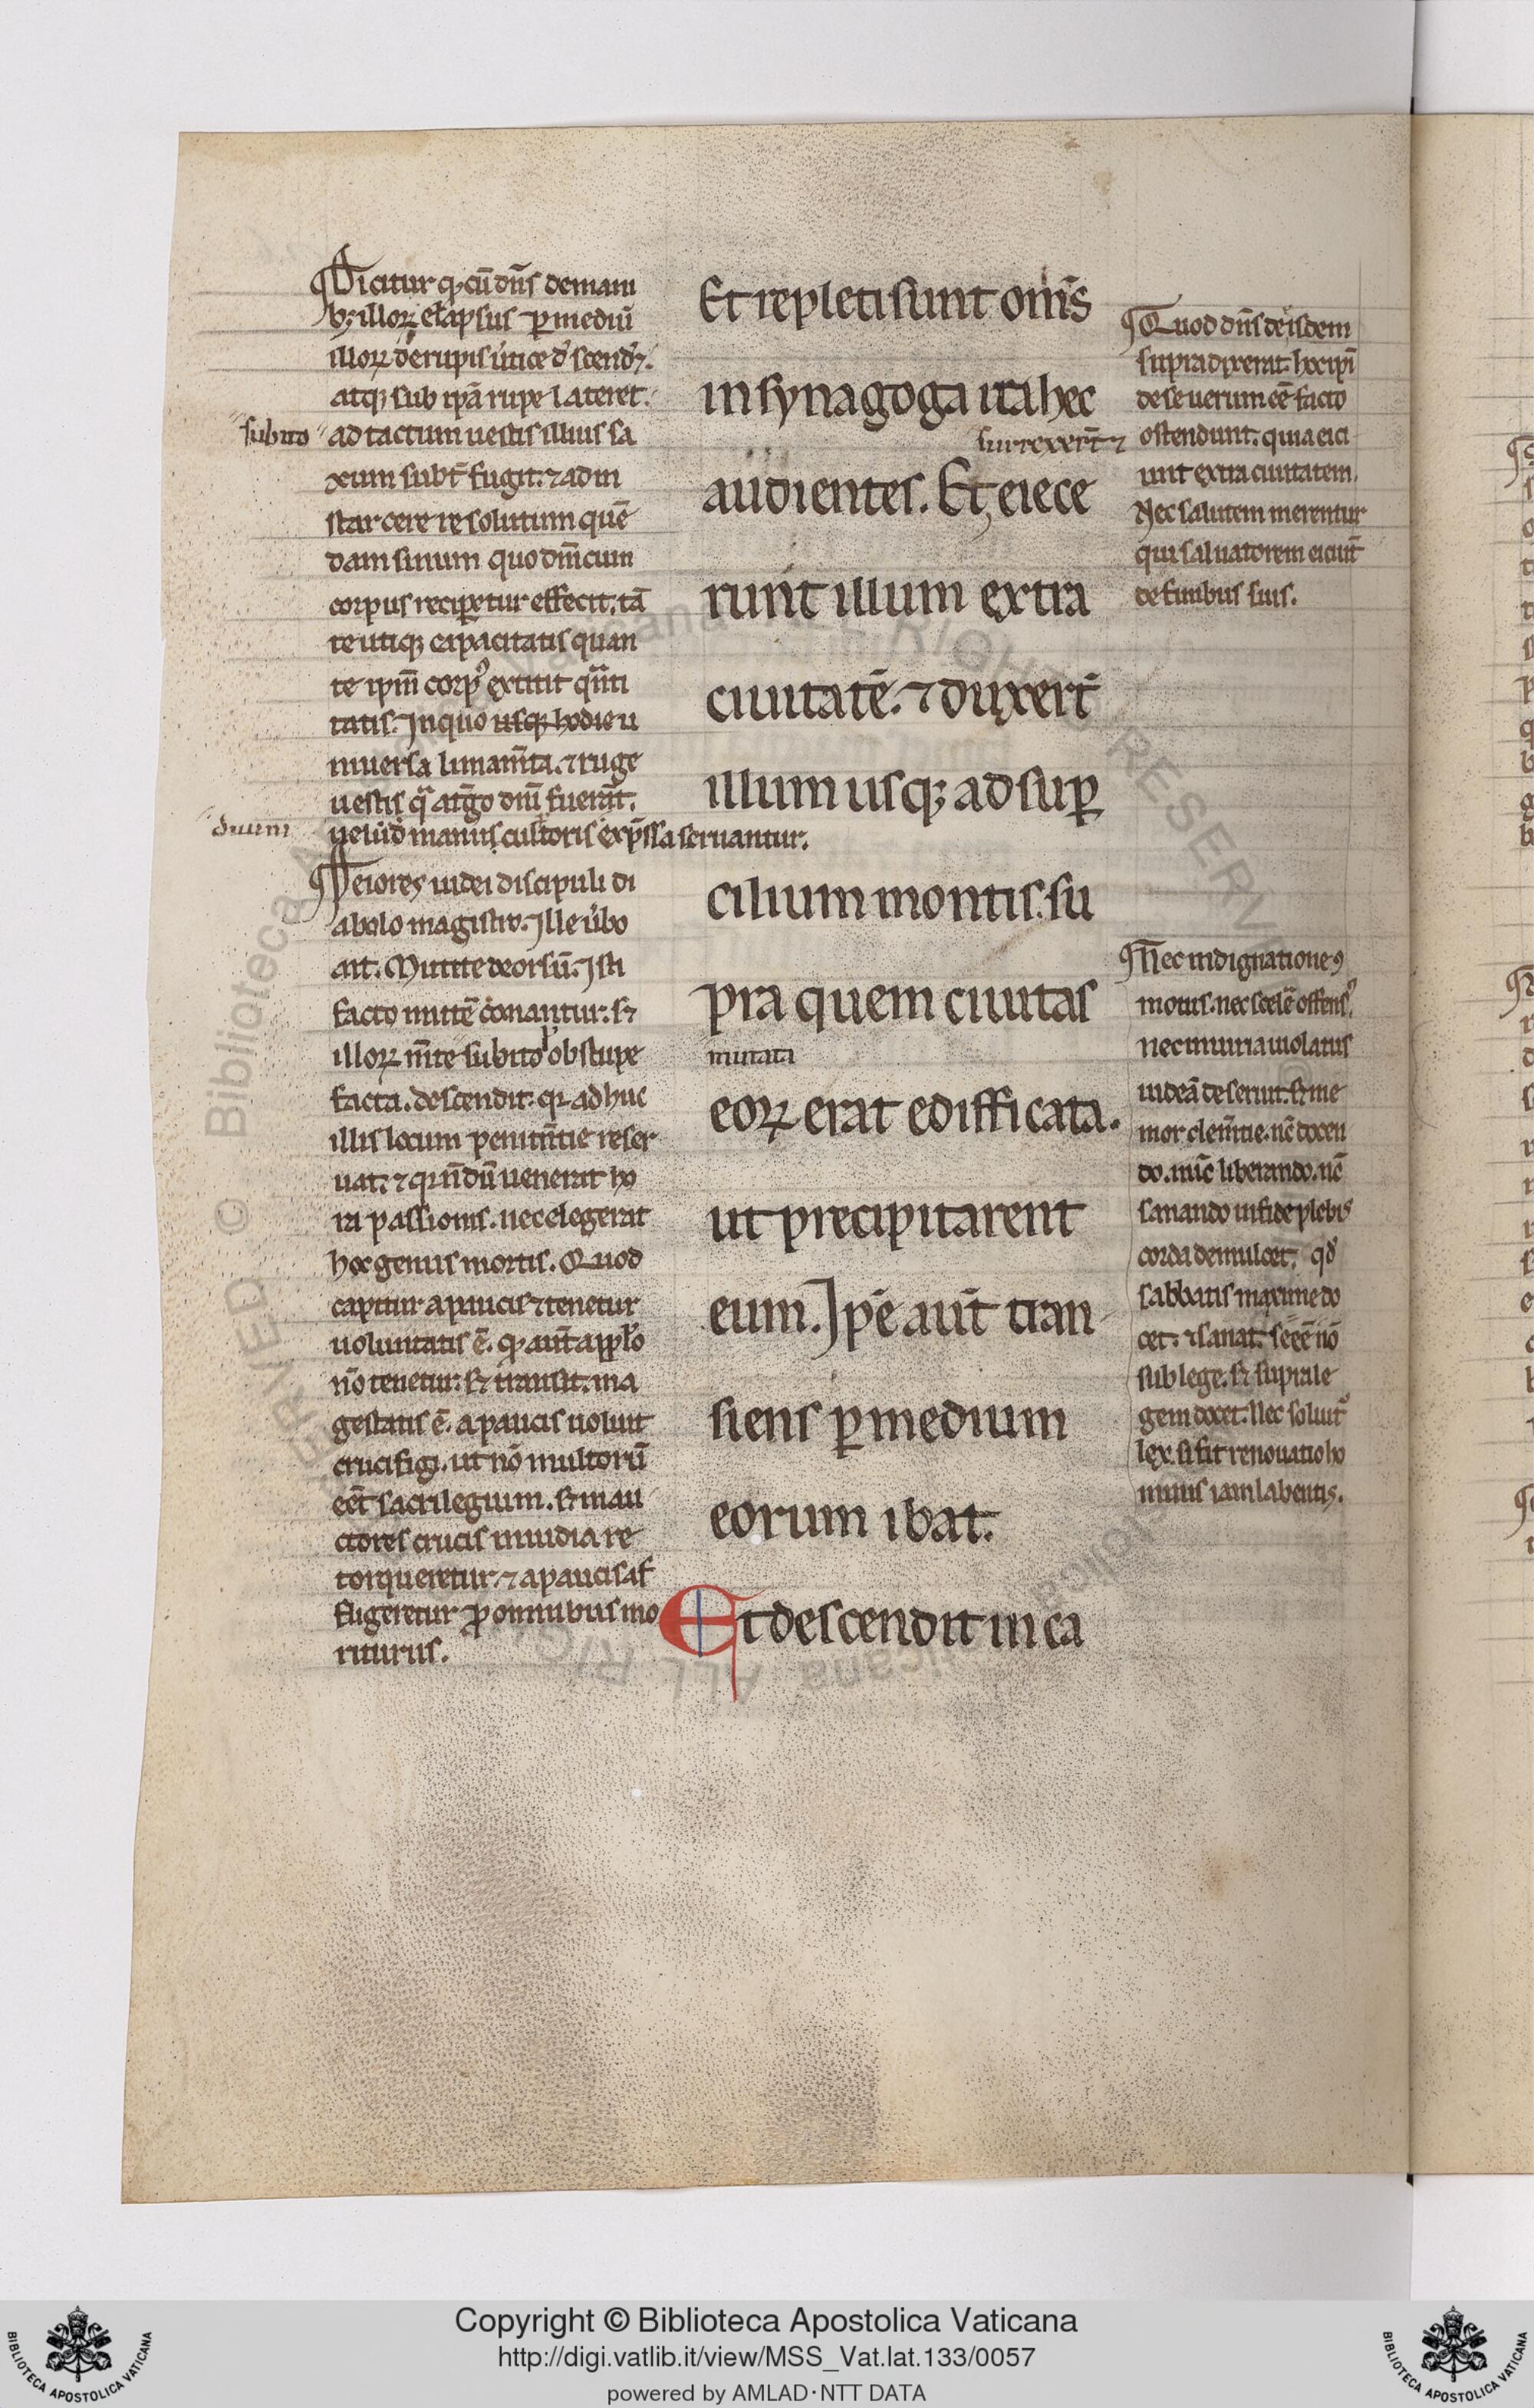 Dicitur qͥ cū dn̄s de mani
bꝫ illoꝝ elapsus ꝑ mediū
illoꝝ de rupis u̇tice desc̄enderꝫ.
atqꝫ sub ipā rupe lateret.
subito
ad tactum uestis illius sa
xum subt̄ fugit. ⁊ ad in
star cere resolutum quē
dam sinum quo dn̄icum
corpus reciꝑetur effecit. tā
te utiqꝫ capacitatis quan
te ipm̄ corpꝰ extitit qn̄ti
tatis. In quo usqꝫ hodie u
niuersa linam̄ta. ⁊ ruge
uestis q̄ a tergo dn̄i fuerāt.
duum
uelud manus cultoris exp̄ssa seruantur.
Peiores iudei discipuli di
abolo magistro. Ille uͦbo
ait. Mitte deorsū. Isti
facto mittē conantur. sꝫ
illoꝝ m̄te subito obstupe
facta. descendit. qꝛ adhuc
illis locum penitn̄tie reser
uat. ⁊ qꝛ n̄dū uenerat ho
ra passionis. nec elegerat
hoc genus mortis. Quod
capitur a paucis ⁊ tenetur
uoluntatis ē. qͥ aut̄ a pplo
nō tenetur. sꝫ transit. ma
gestatis ē. a paucis uoluit
crucifigi. ut nō multorū
eēt sacrilegium. sꝫ in au
ctores crucis inuidia re
torqueretur. ⁊ a paucis af
fligeretur ꝓ omnibus mo
riturus.
Et repleti sunt om̄s
in synagoga ira hec
surrexert̄ ⁊
audientes. Et eiece
runt illum extra
ciuitatē. ⁊ duxert̄
illum usqꝫ ad suꝑ
cilium montis. su
pra quem ciuitas
mutata
eoꝝ erat edifficata.
ut precipitarent
eum. Ipē aut̄ tran
siens ꝑ medium
eorum ibat.
Et descendit in ca
Quod dn̄s de isdem
supra dixerat. hoc ipī
de se uerum eē facto
ostendunt. quia eici
unt extra ciuitatem.
Nec salutem merentur
qui saluatorem eiciūt
de finibus suis.
Nec indignatione ꝯ
motus. nec scelē offensꝰ.
nec iniuria uiolatus
iudeā deserit. sꝫ me
mor clem̄tie. nc̄ docen
do. nūc liberando. nc̄
sanando infide plebis
corda demulcet. qd̄
sabbatis maxime do
cet. ⁊ sanat. se eē nō
sub lege. sꝫ supra le
gem docet. Nec soluitͬ
lex. si fit renouatio ho
minis iam labentis.
Copyright © Biblioteca Apostolica Vaticana
http://digi.vatlib.it/view/MSS_Vat.lat.133/0057
powered by AMLAD·NTT DATA
BIBLIOTECA APOSTOLICA VATICANA
BIBLIOTECA APOSTOLICA VATICANA